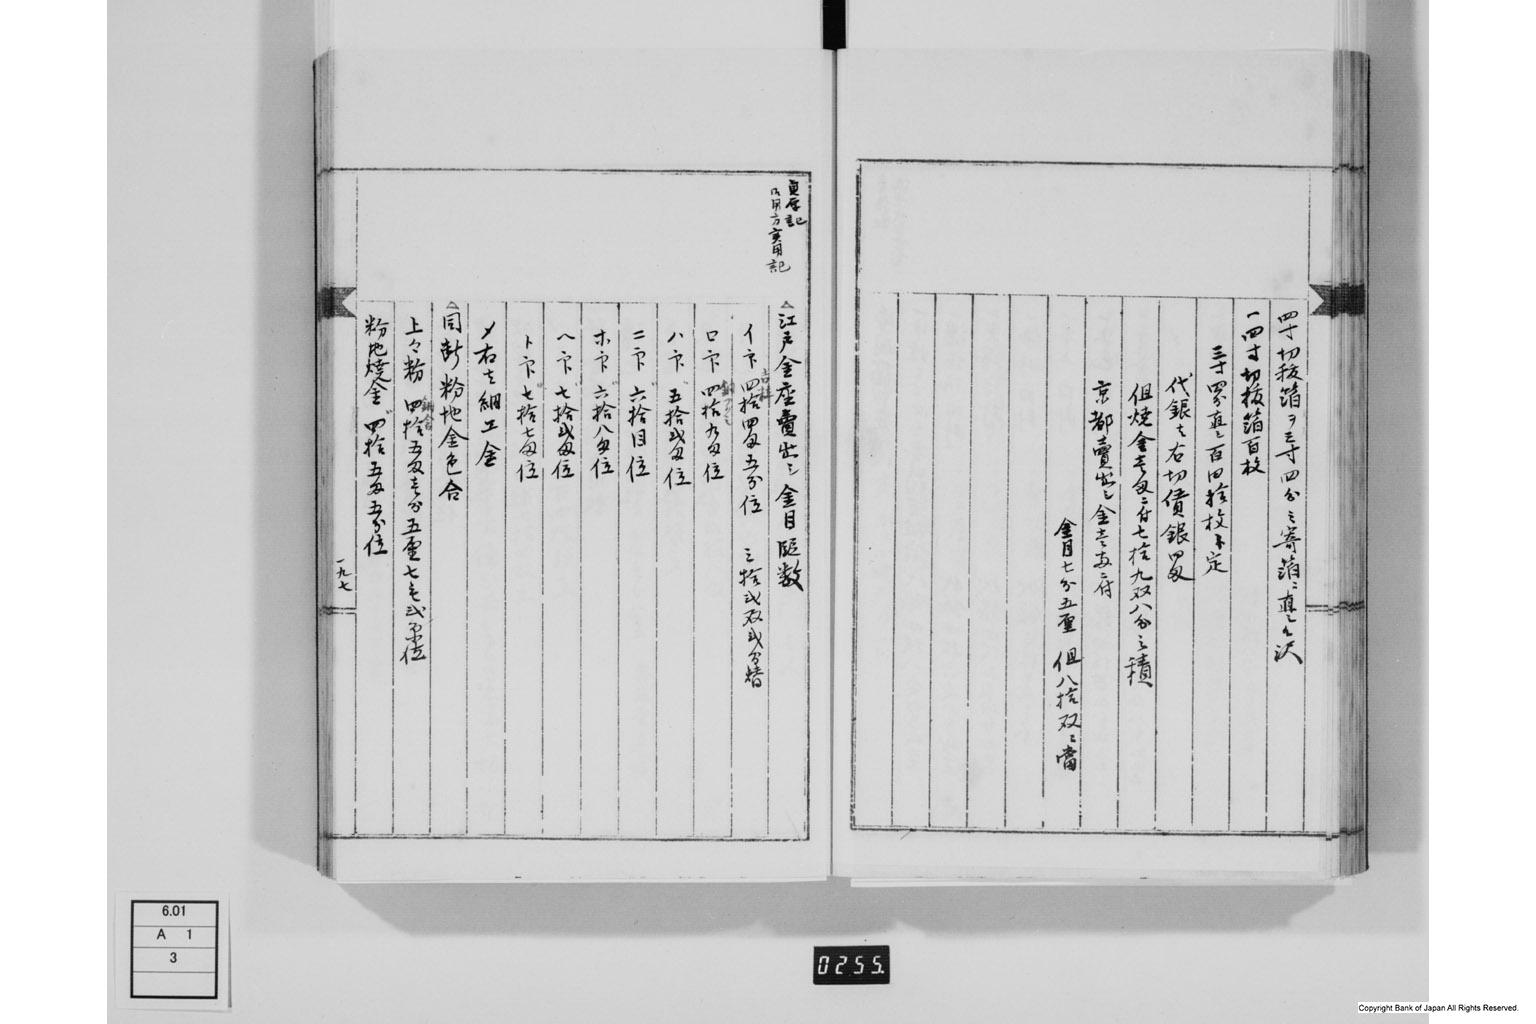 四寸切抜箔ヲ三寸四分之寄箔ニ直し候訳
一四寸切抜箔百枚
三寸四分直し百四拾枚ト定
代銀者右切賃銀四匁
但焼金壱匁ニ付七拾九双八分之積
京都売出し金壱両ニ付
金目七分五厘 但八拾双ニ当
貞享記
御用方実用記
江戸金座売出し金目位数
イ下 四拾四匁五分位 三拾弐双弐分替
ロ下 四拾九匁位
ハ下 五拾弐匁位
ニ下 六拾目位
ホ下 六拾八匁位
ヘ下 七拾弐匁位
ト下 七拾七匁位
〆右者細工金
同断粉地金色合
上々粉 四拾五匁壱分五厘七毛弐
粉地焼金 四拾五匁五分位
一九七
6.01
A 1
3
0255
Copyright Bank of Japan All Rights Reserved.